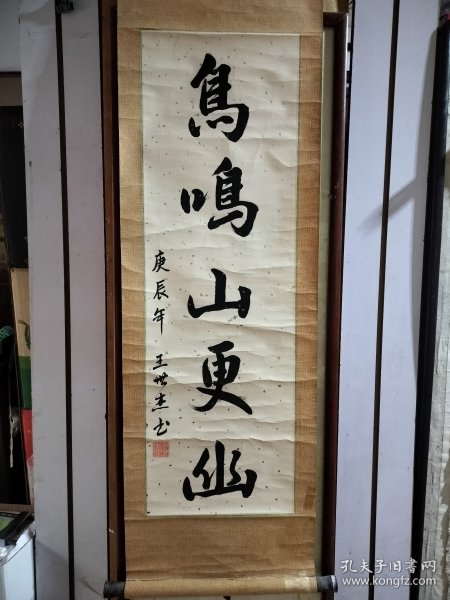 鳥鳴山更幽
庚辰年 王世杰书
孔夫子旧书网
www.kongfz.com